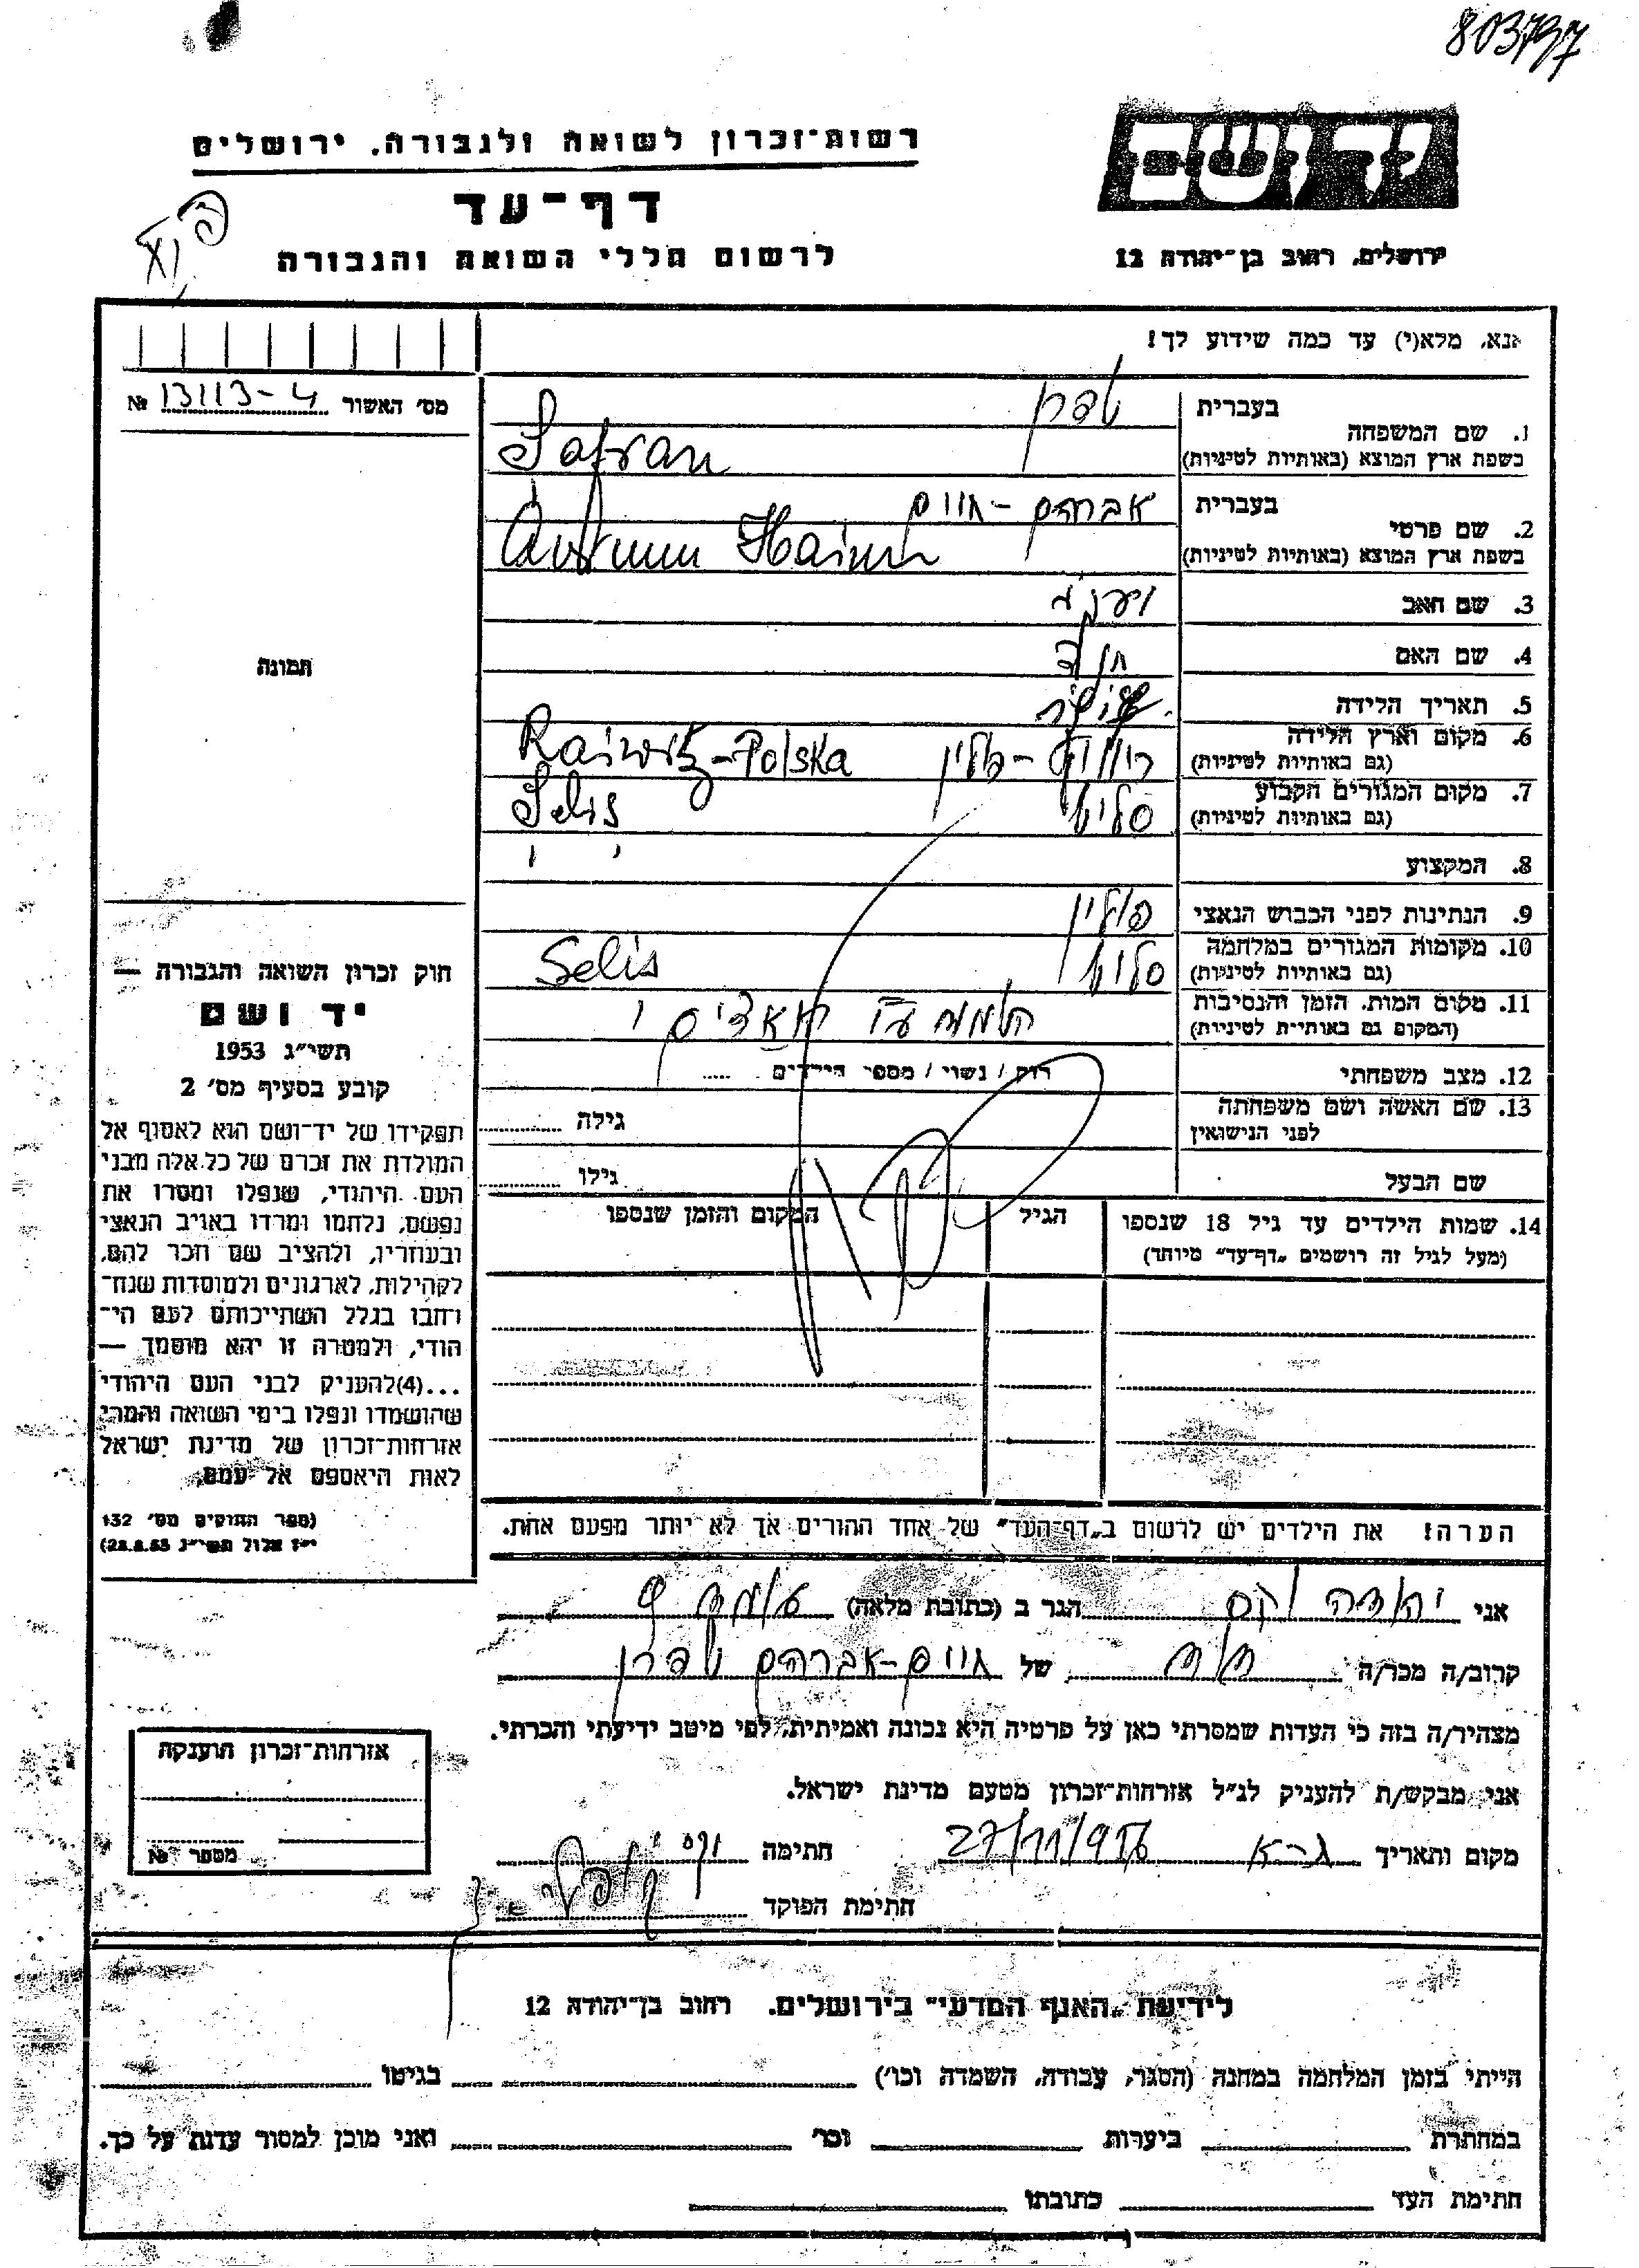 803797
יד ושם
רשות־זכרון לשואה ולגבורה, ירושלים
דף־עד
לרשום חללי השואה והגבורה
ירושלים, רחוב בן־יהודה 12
אנא, מלא(י) עד כמה שידוע לך!
מס' האשור № 13113-4
1. שם המשפחה
בעברית שפרן
בשפת ארץ המוצא (באותיות לטיניות) Safran
2. שם פרטי
בעברית אברהם - חיים
בשפת ארץ המוצא (באותיות לטיניות) Haim
3. שם האב
4. שם האם
5. תאריך הלידה
6. מקום וארץ הלידה
(גם באותיות לטיניות) פולין - Polska
7. מקום המגורים הקבוע
(גם באותיות לטיניות) Selis
8. המקצוע
9. הנתינות לפני הכבוש הנאצי פולין
10. מקומות המגורים במלחמה
(גם באותיות לטיניות) Selis
11. מקום המות, הזמן והנסיבות
(המקום גם באותיות לטיניות)
12. מצב משפחתי רוק / נשוי / מספר הילדים .....
13. שם האשה ושם משפחתה
לפני הנישואין
גילה
שם הבעל
גילו
14. שמות הילדים עד גיל 18 שנספו
(מעל לגיל זה רושמים "דף־עד" מיוחד)
הגיל
המקום והזמן שנספו
הערה! את הילדים יש לרשום ב"דף־העד" של אחד ההורים אך לא יותר מפעם אחת.
תמונה
חוק זכרון השואה והגבורה —
יד ושם
תשי"ג 1953
קובע בסעיף מס' 2
תפקידו של יד־ושם הוא לאסוף אל
המולדת את זכרם של כל אלה מבני
העם היהודי, שנפלו ומסרו את
נפשם, נלחמו ומרדו באויב הנאצי
ובעוזריו, ולהציב שם וזכר להם,
לקהילות, לארגונים ולמוסדות שנח־
רחבו בגלל השתייכותם לעם הי־
הודי, ולמטרה זו יהא מוסמך —
...(4)להעניק לבני העם היהודי
שהושמדו ונפלו בימי השואה והמרי
אזרחות־זכרון של מדינת ישראל
לאות היאספם אל עמם.
(ספר החוקים מס' 132
י"ז אלול תשי"ג 28.8.53)
אני יהודה הגר ב (כתובת מלאה)
קרוב/ה מכר/ה של חיים-אברהם שפרן
מצהיר/ה בזה כי העדות שמסרתי כאן על פרטיה היא נכונה ואמיתית, לפי מיטב ידיעתי והכרתי.
אני מבקש/ת להעניק לנ"ל אזרחות־זכרון מטעם מדינת ישראל.
מקום ותאריך 27/11/956 חתימה
חתימת הפוקד
אזרחות־זכרון הוענקה
מספר №
לידיעת "האגף המדעי" בירושלים. רחוב בן־יהודה 12
הייתי בזמן המלחמה במחנה (הסגר, עבודה, השמדה וכו') בגיטו
במחתרת ביערות וכו' ואני מוכן למסור עדות על כך.
חתימת העד כתובתו